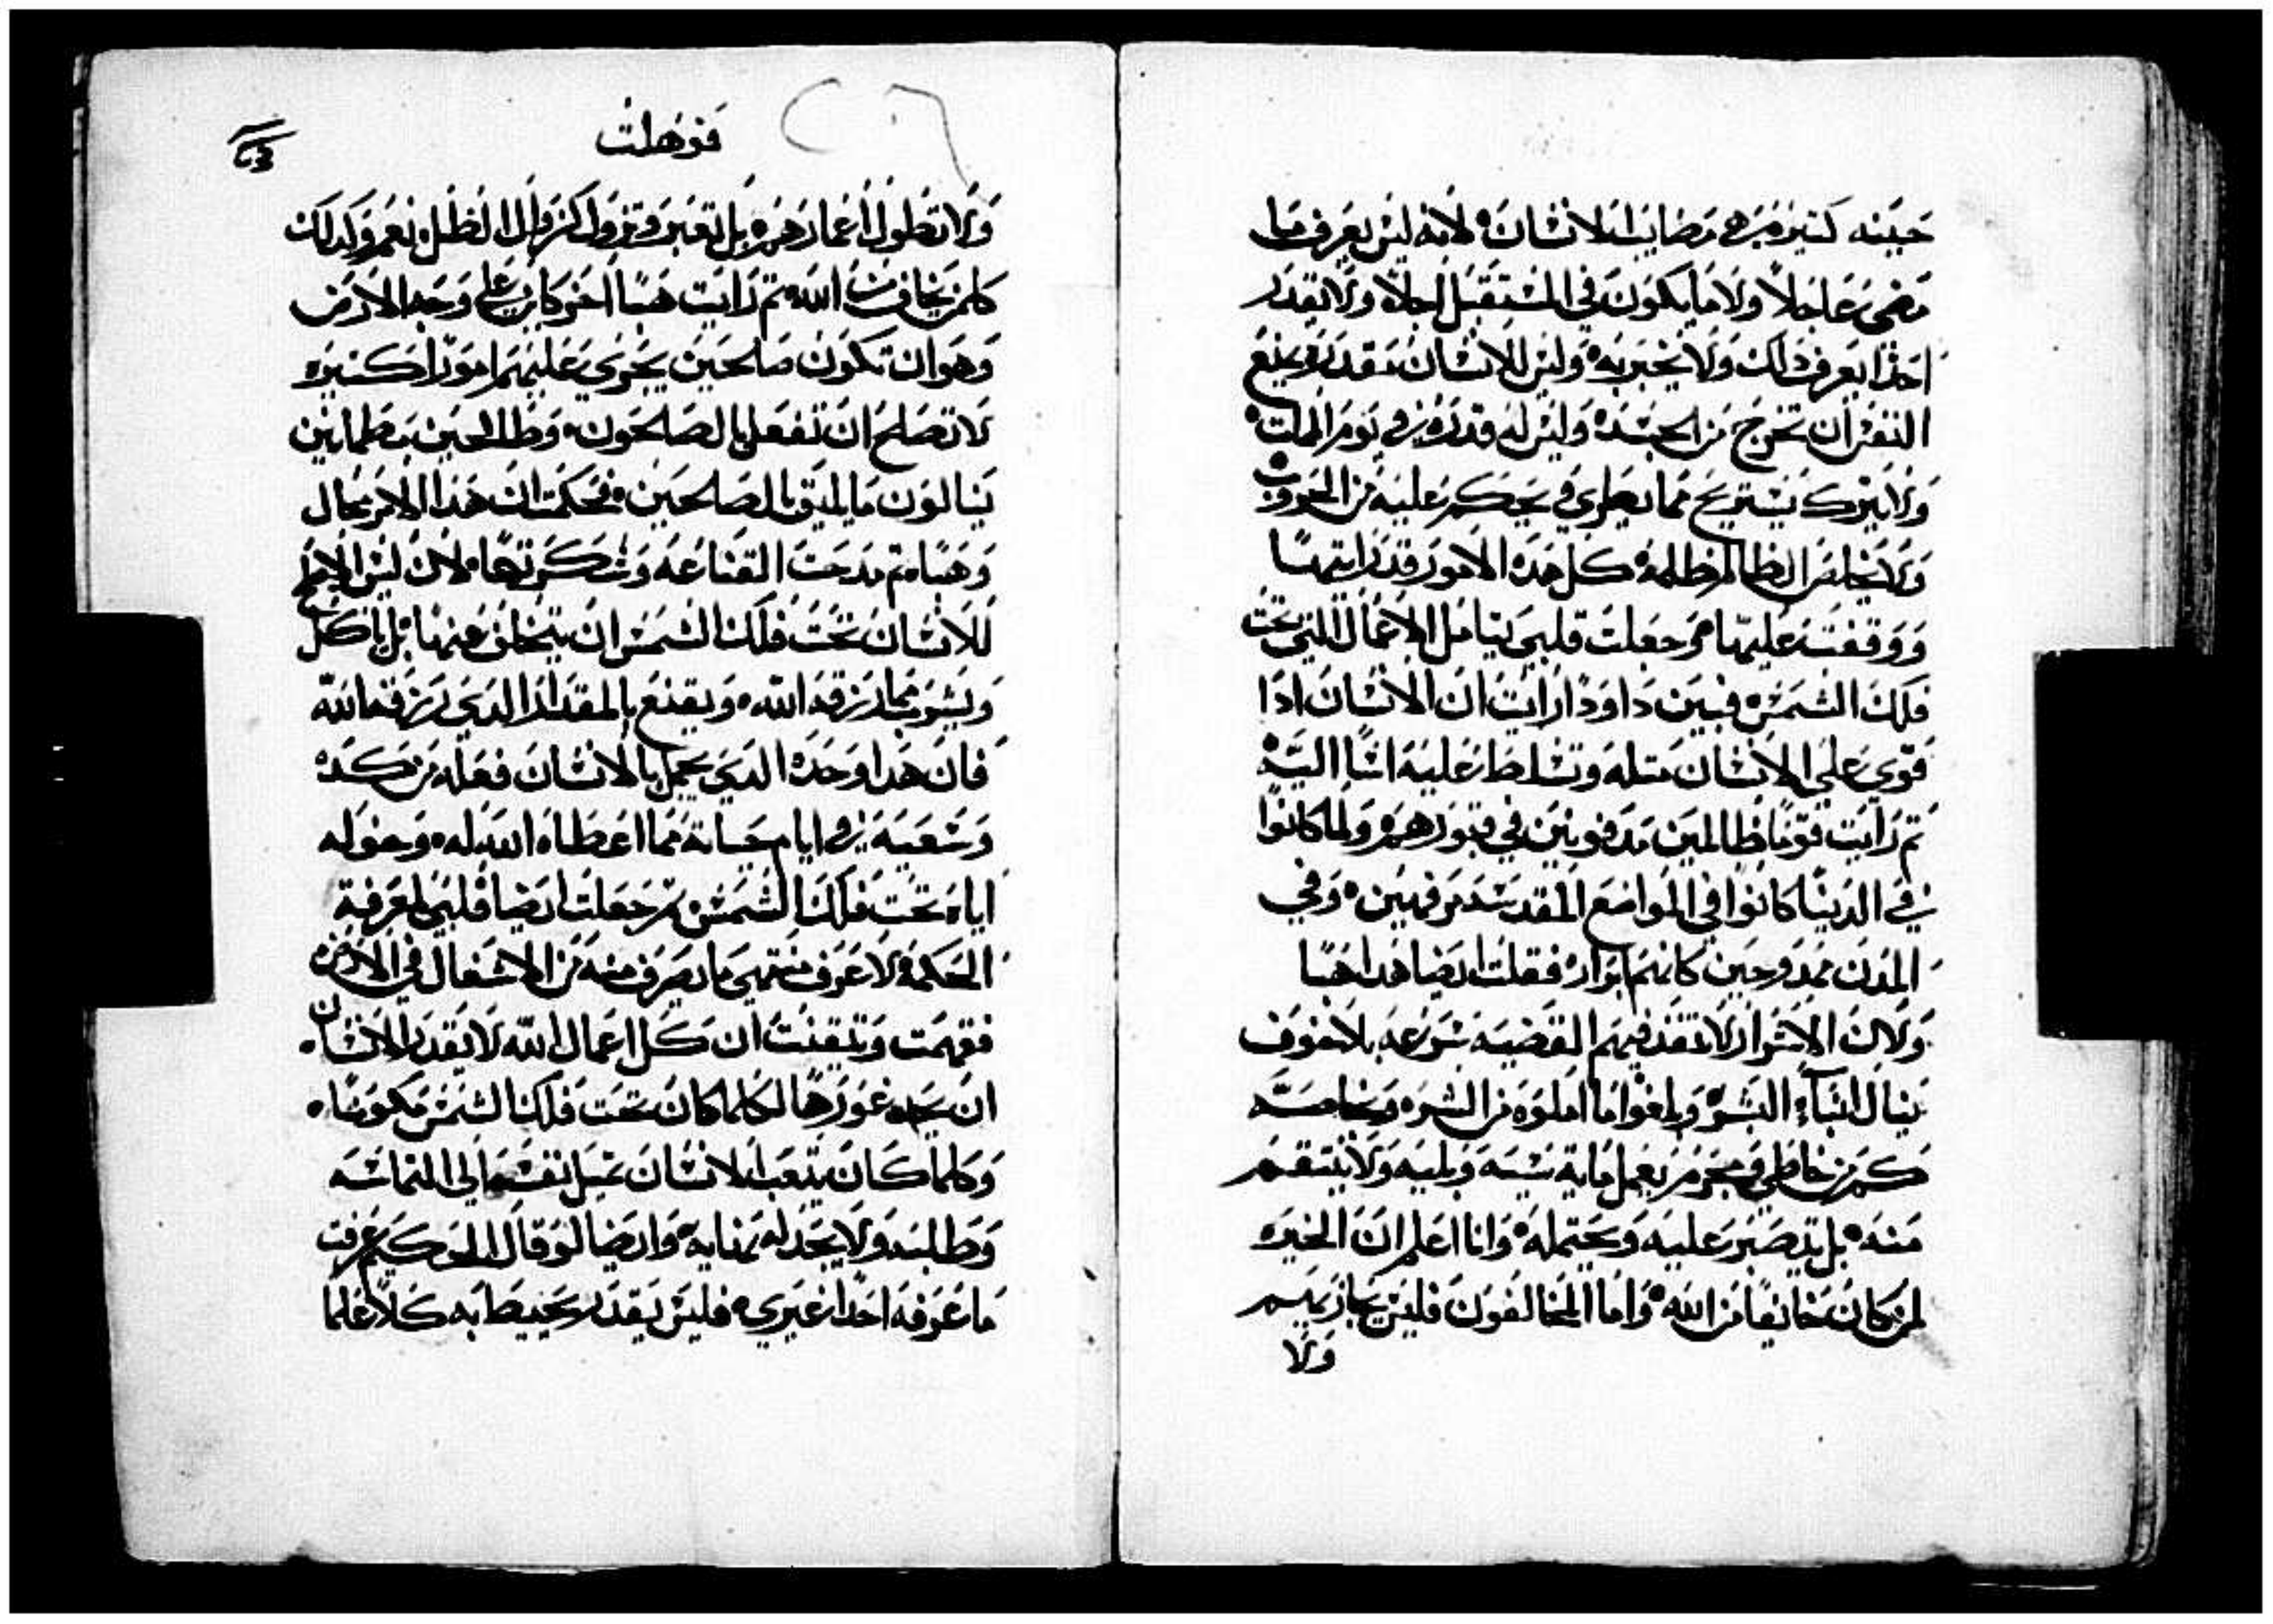 حينه كثيرة هي مصايب الانسان لانه ليس يعرف ما
مضى عاجلاً ولا ما يكون في المستقبل اجلاً ولا يقدر
احدًا يعرف ذلك ولا يخبر به وليس للانسان مقدره يمنع
النفس ان تخرج من الجسد وليس له قدره في يوم الموت
ولا يترك يستريح مما يطري ويحكم عليه من الحروب
ولا يخلص الظالم ظلمه كل هذه الامور قد رايتها
ووقفت عليها ثم جعلت قلبي يتامل الاعمال التي تحت
فلك الشمس فبين داودًا رايت ان الانسان اذا
قوي على الانسان مثله وتسلط عليه اتا اليه
ثم رايت قومًا ظالمين مدفونين في قبورهم ولما كانوا
في الدنيا كانوا في المواضع المقدسه مرفهين وفي
المدن ممدوحين كانهم ابرار فقلت ايضا هذا هبا
ولان الاشرار لا تنفذ فيهم القضيه سرعه بلا خوف
ينال ابناء البشر وبلغوا ما املوه من الشره وبخاصه
كم من خاطي ومجرم يعمل مايه سيه وبليه ولا ينتقم
منه بل يصبر عليه ويحتمله وانا اعلم ان الخيره
لمن كان خايفًا من الله واما المخالفون فليس يجازيهم
ولا
فوهلت
ولا تطول اعمارهم بل تعبر وتزول كزوال الظل نعم وكذلك
كلمن يخاف من الله ثم رايت هبا اخر كاين على وجه الارض
وهو ان تكون صالحين يجري عليهم امورًا كثيره
لا تصلح ان تفعل بالصالحون وظالمين مطمانين
ينالون ما يليق بالصالحين فحكمت ان هذا الامر محال
وهبا ثم مدحت القناعه وشكرتها لان ليس الاصلح
للانسان تحت فلك الشمس ان يتخلف عنها بل ياكل
ويشرب مما رزقه الله ويقنع بالمقدار الذي رزقه الله
فان هذا وحده الذي يجمل بالانسان فعله من كده
وشعبه في ايام حياته مما اعطاه الله له وخوله
اياه تحت فلك الشمس ثم جعلت ايضا قلبي لمعرفة
الحكمه لاعرف منتهى ما يصرف منه من الاشغال في الارض
ففهمت وتيقنت ان كل اعمال الله لا يقدر الانسان
ان يجد غورها لكلما كان تحت فلك الشمس مكونًا
وكلما كان يتعب الانسان تميل نفسه الى التماسه
وطلبه ولا يجد له نهايه وايضا لو قال الحكيم عرفت
ما عرفه احدا غيري فليس يقدر يحيط به كلا علما